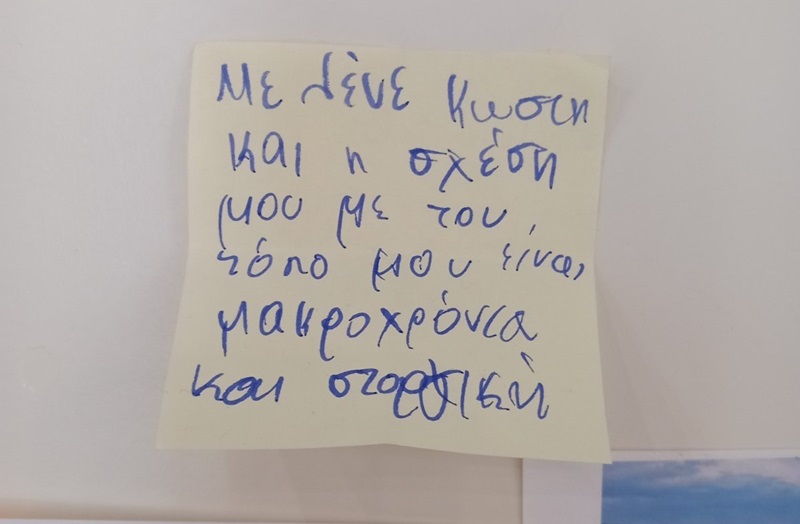 Με λένε Κωστη
και η σχέση
μου με του
τόπο μου είναι
μακροχρόνια
και στοργική